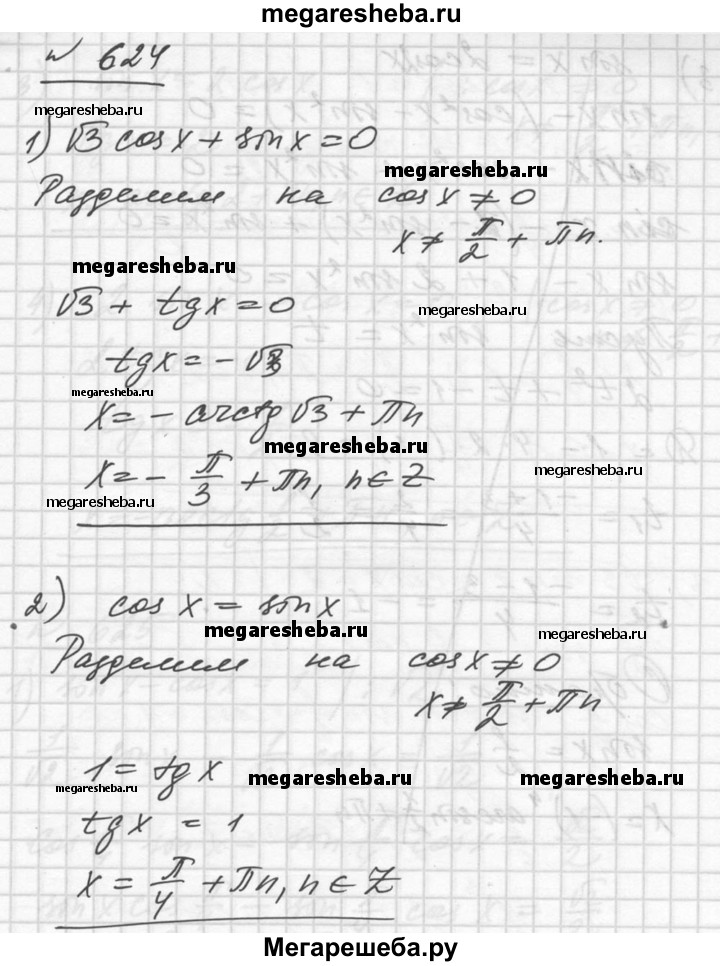 megaresheba.ru
№ 624
megaresheba.ru
1) √3 cos x + sin x = 0
megaresheba.ru
Разделим на cos x ≠ 0
x ≠ π/2 + πn.
megaresheba.ru
√3 + tg x = 0
megaresheba.ru
tg x = - √3
megaresheba.ru
x = - arctg √3 + πn
megaresheba.ru
x = - π/3 + πn, n ∈ Z
megaresheba.ru
megaresheba.ru
2) cos x = sin x
megaresheba.ru
megaresheba.ru
Разделим на cos x ≠ 0
x ≠ π/2 + πn
1 = tg x
megaresheba.ru
megaresheba.ru
tg x = 1
x = π/4 + πn, n ∈ Z
Мегарешеба.ру